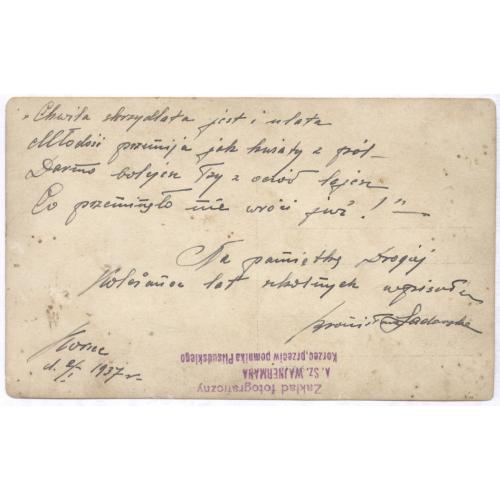 "Chwila skrzydlata jest i ulata
Młodość przemija jak kwiaty z pól –
Darmo bolejesz łzy z oczu lejesz
Co przeminęło nie wróci już!"
Na pamiątkę Drogiej
Koleżance lat szkolnych wpisała
Korzec
d. 2/I 1937 r.
Zakład fotograficzny
A. SZ. WAJNERMANA
Korzec, przeciw pomnika Piłsudskiego